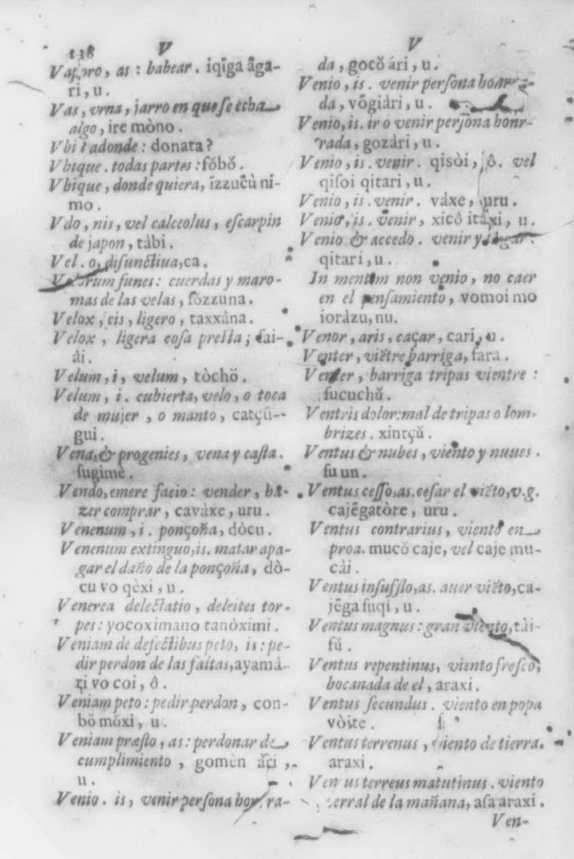 138 V
Vaporo, as : babear. iqiga ăga-
ri, u.
Vas, vrna, jarro en que se echa
algo, ire mòno.
Vbi l adonde : donata?
Vbique. todas partes : fóbŏ.
Vbique, donde quiera, izzucù ni-
mo.
Vdo, nis, vel calceolus, escarpin
de japon, tàbi.
Vel. o, disunctiua, ca.
Velorum funes : cuerdas y maro-
mas de las velas, fozzuna.
Velox, cis, ligero, taxxàna.
Velox, ligera cosa presta; fai-
ài.
Velum, i, velum, tòchŏ.
Velum, i. cubierta, velo, o toca
de mujer, o manto, catçŭ-
gui.
Vena, & progenies, vena y casta.
sugimè.
Vendo, emere facio : vender, ha-
zer comprar, cavàxe, uru.
Venenum, i. ponçoña, dòcu.
Venenum extinguo, is. matar apa-
gar el daño de la ponçoña, dò-
cu vo qèxi, u.
Venerea delectatio, deleites tor-
pes : yocoximano tanòximi.
Veniam de defectibus peto, is : pe-
dir perdon de las faltas, ayamà-
ri vo coi, ô.
Veniam peto : pedir perdon, con-
bŏ mòxi, u.
Veniam præsto, as : perdonar de
cumplimiento, gomèn
u.
Venio. is, venir persona honrra-
V
da, gocŏ àri, u.
Venio, is. venir persona honrra-
da, vŏgiàri, u.
Venio, is. ir o venir persona honr-
rada, gozàri, u.
Venio, is. venir. qisòi, ô. vel
qisoi qitari, u.
Venio, is. venir. vàxe, uru.
Venio, is. venir, xicŏ itàxi, u.
Venio & accedo. venir y llegar.
qitari, u.
In mentem non venio, no caer
en el pensamiento, vomoi mo
ioràzu, nu.
Venor, aris, caçar, cari, u.
Venter, viẽtre barriga, fara.
Venter, barriga tripas vientre :
fucuchŭ.
Ventris dolor: mal de tripas o lom-
brizes. xintçŭ.
Ventus & nubes, viento y nuues.
fu un.
Ventus cesso, as. cesar el viẽto, v.g.
cajĕgatòre, uru.
Ventus contrarius, viento en
proa. mucŏ caje, vel caje mu-
cài.
Ventus insufflo, as. auer viẽto, ca-
jĕga fuqi, u.
Ventus magnus : gran viento, tài-
fŭ.
Ventus repentinus, viento fresco,
bocanada de el, araxi.
Ventus secundus. viento en popa
vòite.
Ventus terrenus, viento de tierra.
araxi.
Ventus terreus matutinus. viento
terral de la mañana, asa araxi.
Ven-